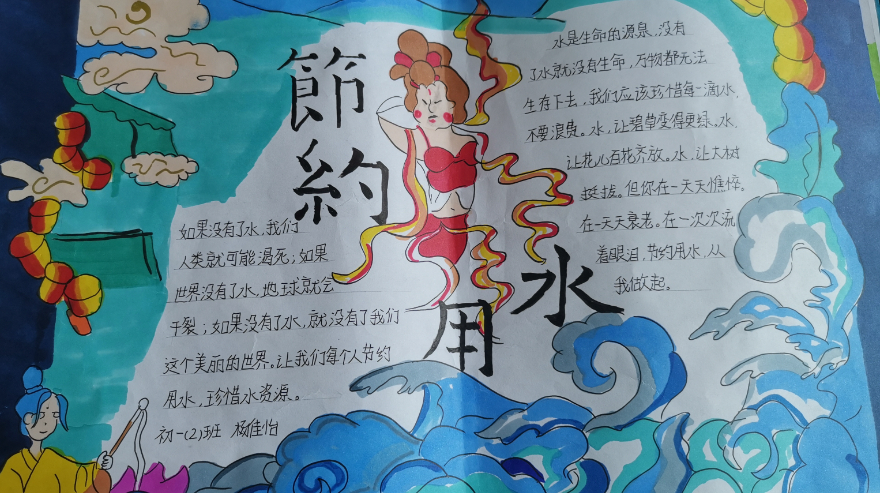 節約用水
水是生命的源泉,没有
了水就没有生命,万物都无法
生存下去,我们应该珍惜每一滴水,
不要浪费。水,让碧草变得更绿。水,
让花儿百花齐放。水,让大树
挺拔。但你在一天天憔悴。
在一天天衰老。在一次次流
着眼泪,节约用水,从
我做起。
如果没有了水,我们
人类就可能渴死;如果
世界没有了水,地球就会
干裂;如果没有了水,就没有了我们
这个美丽的世界。让我们每个人节约
用水,珍惜水资源。
初一(2)班 杨佳怡